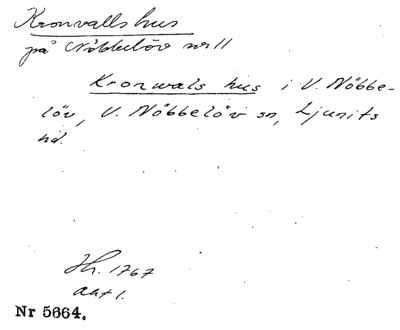 Kronvalls hus
på Nöbbelöv nr 11
Kronwals hus i V. Nöbbe-
löv, V. Nöbbelöv sn, Ljunits
hd.
Jh. 1767
akt 1.
Nr 5664.